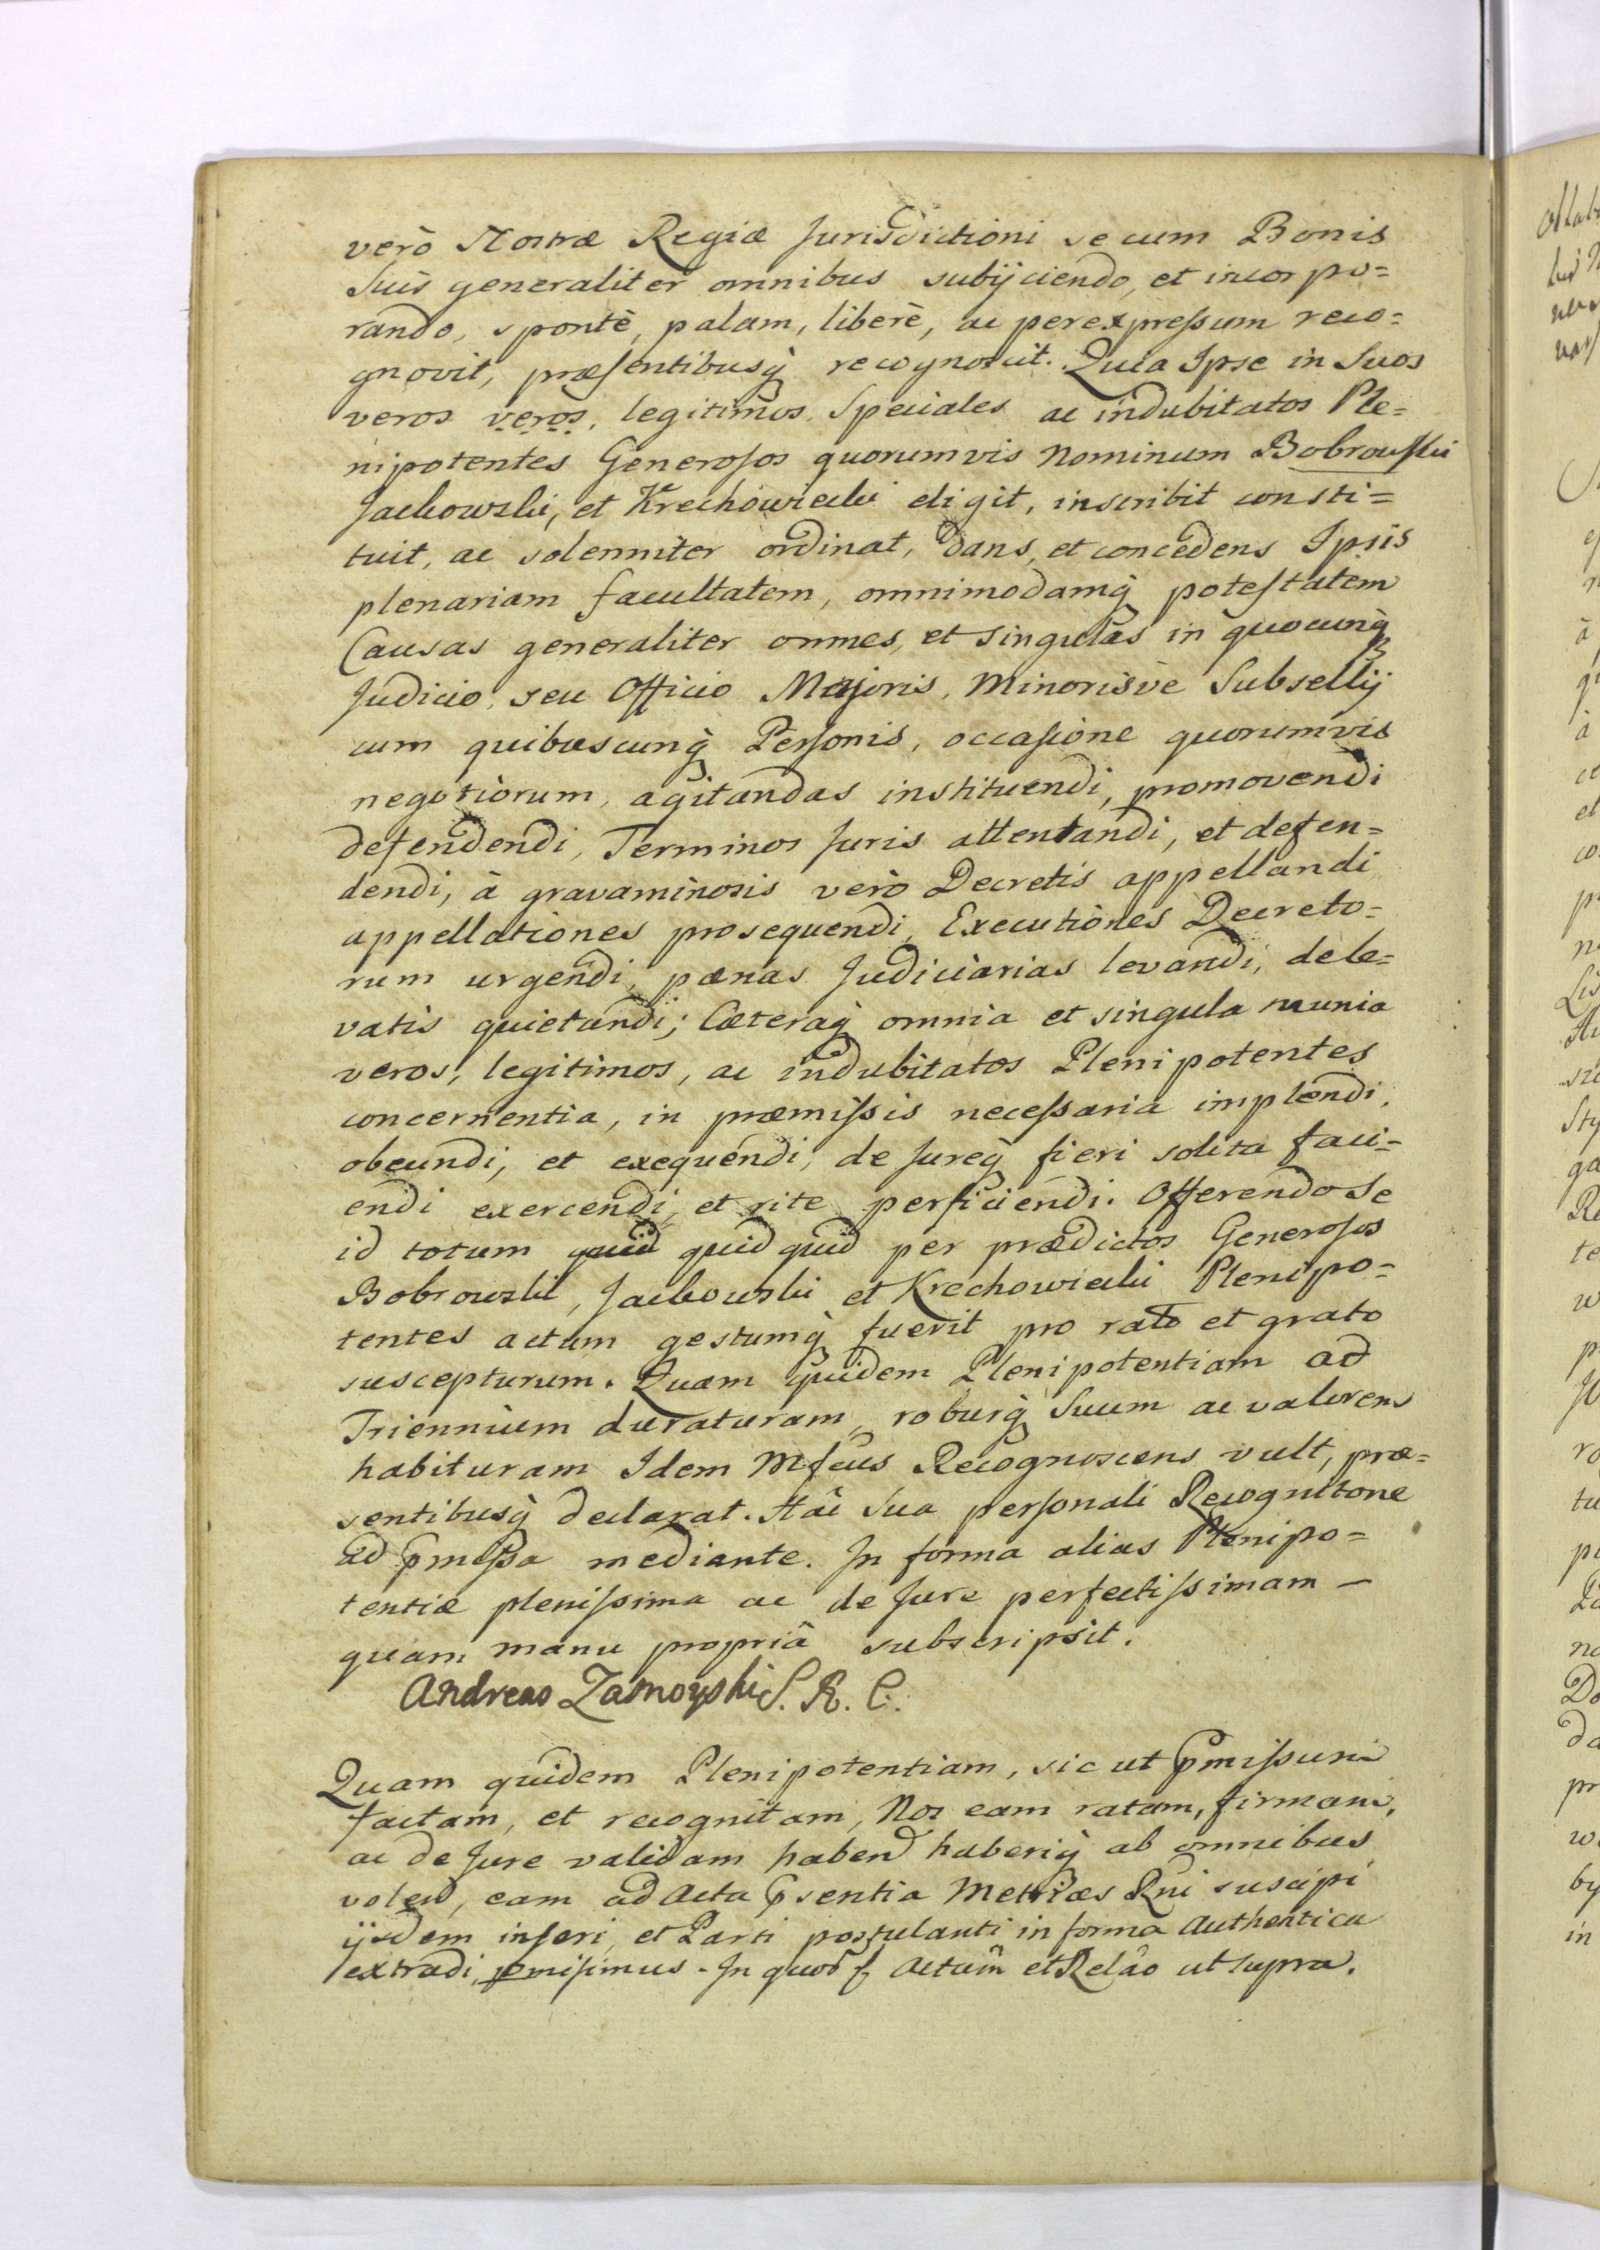 verò Nostræ Regiæ Jurisdictioni se cum Bonis
Suis generaliter omnibus subijciendo, et incorpo=
rando, spontè, palam, liberè, ac per expressum reco=
gnovit, præsentibusq̀ recognoscit. Quia Ipse in Suos
veros veros, legitimos, Speciales ac indubitatos Ple=
nipotentes Generosos quorumvis Nominum Bobrowski
Jackowski, et Krechowiecki eligit, inscribit consti=
tuit, ac solenniter ordinat, dans, et concedens Ipsis
plenariam facultatem, omnimodamq̀ potestatem
Causas generaliter omnes, et singulas in quocunq̀
Judicio, seu Officio Majoris, Minorisvè Subsellij
cum quibuscunq̀ Personis, occasione quorumvis
negotiorum, agitandas instituendi, promovendi
defendendi, Terminos Juris attentandi, et defen=
dendi, à gravaminosis verò Decretis appellandi
appellationes prosequendi, Executiones Decreto=
rum urgendi, pænas Judiciarias levandi, de le=
vatis quietandi; Cæteraq̀ omnia et singula munia
veros, legitimos, ac indubitatos Plenipotentes
concernentia, in præmissis necessaria implendi,
obeundi, et exequendi, de Jureq̀ fieri solita faci=
endi exercendi, et rite perficiendi. Offerendo Se
id totum quid quid quid per prædictos Generosos
Bobrowski, Jackowski et Krechowiecki Plenipo=
tentes actum gestumq̀ fuerit pro rato et grato
suscepturum. Quam quidem Plenipotentiam ad
Triennium duraturam, roburq̀ Suum ac valorem
habituram Idem Mfcus Recognoscens vult, præ=
sentibusq̀ declarat. Hac Sua personali Recognitone
ad p̄missa mediante. In forma alias Plenipo=
tentiæ plenissima ac de Jure perfectissimam –
quam manu propriâ subscripsit.
Andreas Zamoyski S. R. C.
Quam quidem Plenipotentiam, sic ut p̄missum
factam, et recognitam, Nos eam ratam, firmam,
ac de Jure validam habend haberiq̀ ab omnibus
volend, eam ad Acta p̄sentia Metrices Rni suscipi
ijsdem inseri, et Parti postulanti in forma Authentica
extradi, permisimus. In quod f Actum̄ et Relâo ut supra.